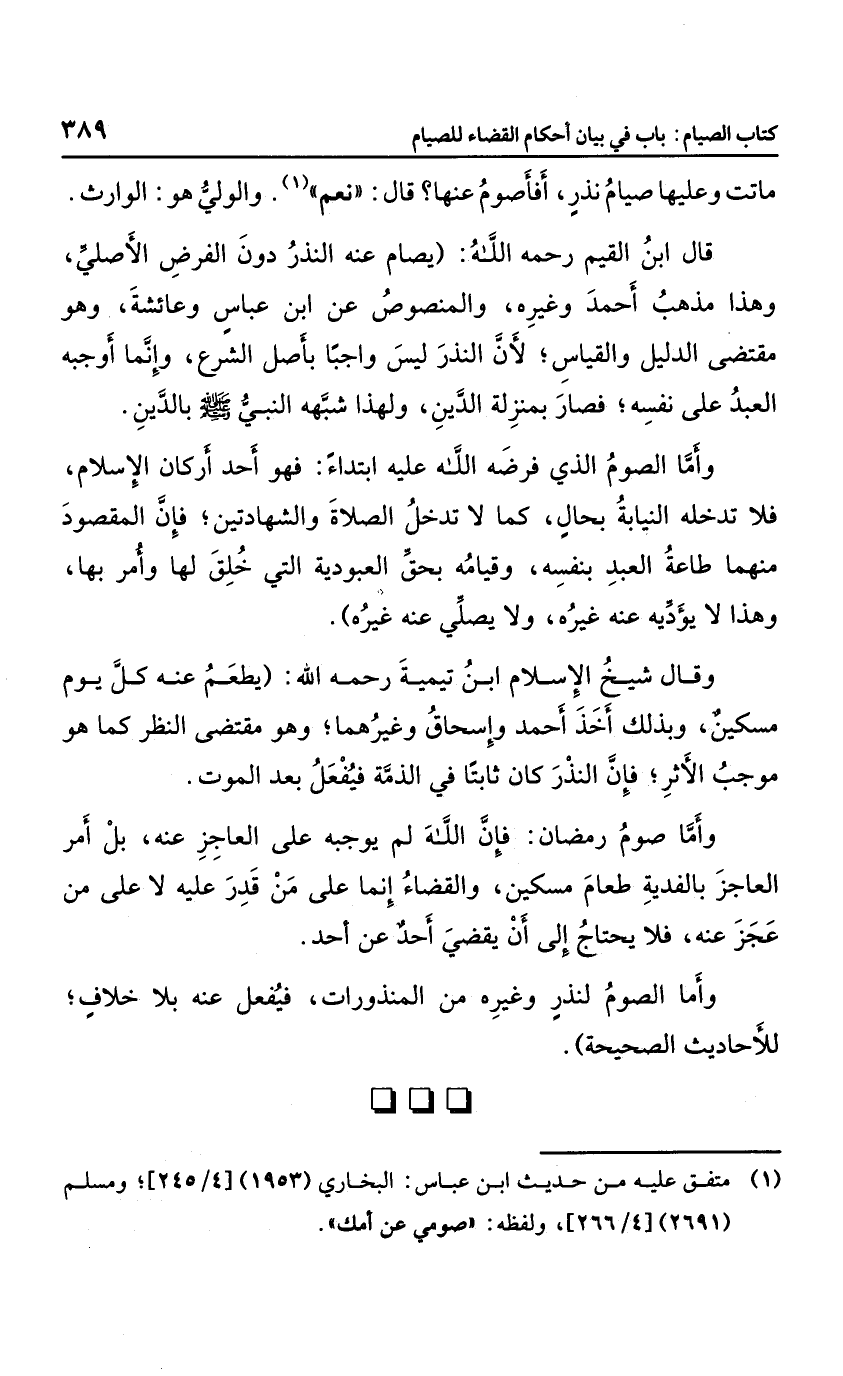 كتاب الصيام: باب في بيان أحكام القضاء للصيام ٣٨٩
ماتت وعليها صيامُ نذرٍ، أَفأَصومُ عنها؟ قال: «نعم»(١). والوليُّ هو: الوارث.
قال ابنُ القيم رحمه اللَّـهُ: (يصام عنه النذرُ دونَ الفرضِ الأَصليِّ،
وهذا مذهبُ أَحمدَ وغيرِه، والمنصوصُ عن ابن عباسٍ وعائشةَ، وهو
مقتضى الدليل والقياسِ؛ لأَنَّ النذرَ ليسَ واجبًا بأَصل الشرع، وإِنَّما أَوجبه
العبدُ على نفسِه؛ فصارَ بمنزِلة الدَّينِ، ولهذا شبَّهه النبـيُّ ﷺ بالدَّينِ.
وأَمَّا الصومُ الذي فرضَه اللَّـه عليه ابتداءً: فهو أَحد أَركان الإِسلام،
فلا تدخله النيابةُ بحالٍ، كما لا تدخلُ الصلاةَ والشهادتين؛ فإِنَّ المقصودَ
منهما طاعةُ العبدِ بنفسِه، وقيامُه بحقِّ العبودية التي خُلِقَ لها وأُمر بها،
وهذا لا يؤدِّيه عنه غيرُه، ولا يصلِّي عنه غيرُه).
وقـال شيـخُ الإِسـلام ابـنُ تيميـةَ رحمـه الله: (يطعَـمُ عنـه كـلَّ يـوم
مسكينٌ، وبذلك أَخَذَ أَحمد وإِسحاقُ وغيرُهما؛ وهو مقتضى النظر كما هو
موجبُ الأَثرِ؛ فإِنَّ النذْرَ كان ثابتًا في الذمَّة فيُفْعَلُ بعد الموت.
وأَمَّا صومُ رمضان: فإِنَّ اللَّـهَ لم يوجبه على العاجِزِ عنه، بلْ أَمر
العاجزَ بالفديةِ طعامَ مسكين، والقضاءُ إِنما على مَنْ قَدِرَ عليه لا على من
عَجَزَ عنه، فلا يحتاجُ إِلى أَنْ يقضيَ أَحدٌ عن أحد.
وأَما الصومُ لنذرٍ وغيرِه من المنذورات، فيُفعل عنه بلا خلافٍ؛
للأَحاديث الصحيحة).
(١) متفـق عليـه مـن حـديـث ابـن عبـاس: البخـاري (١٩٥٣) [٤/ ٢٤٥]؛ ومسلـم
(٢٦٩١) [٤/ ٢٦٦]، ولفظه: «صومي عن أمك».